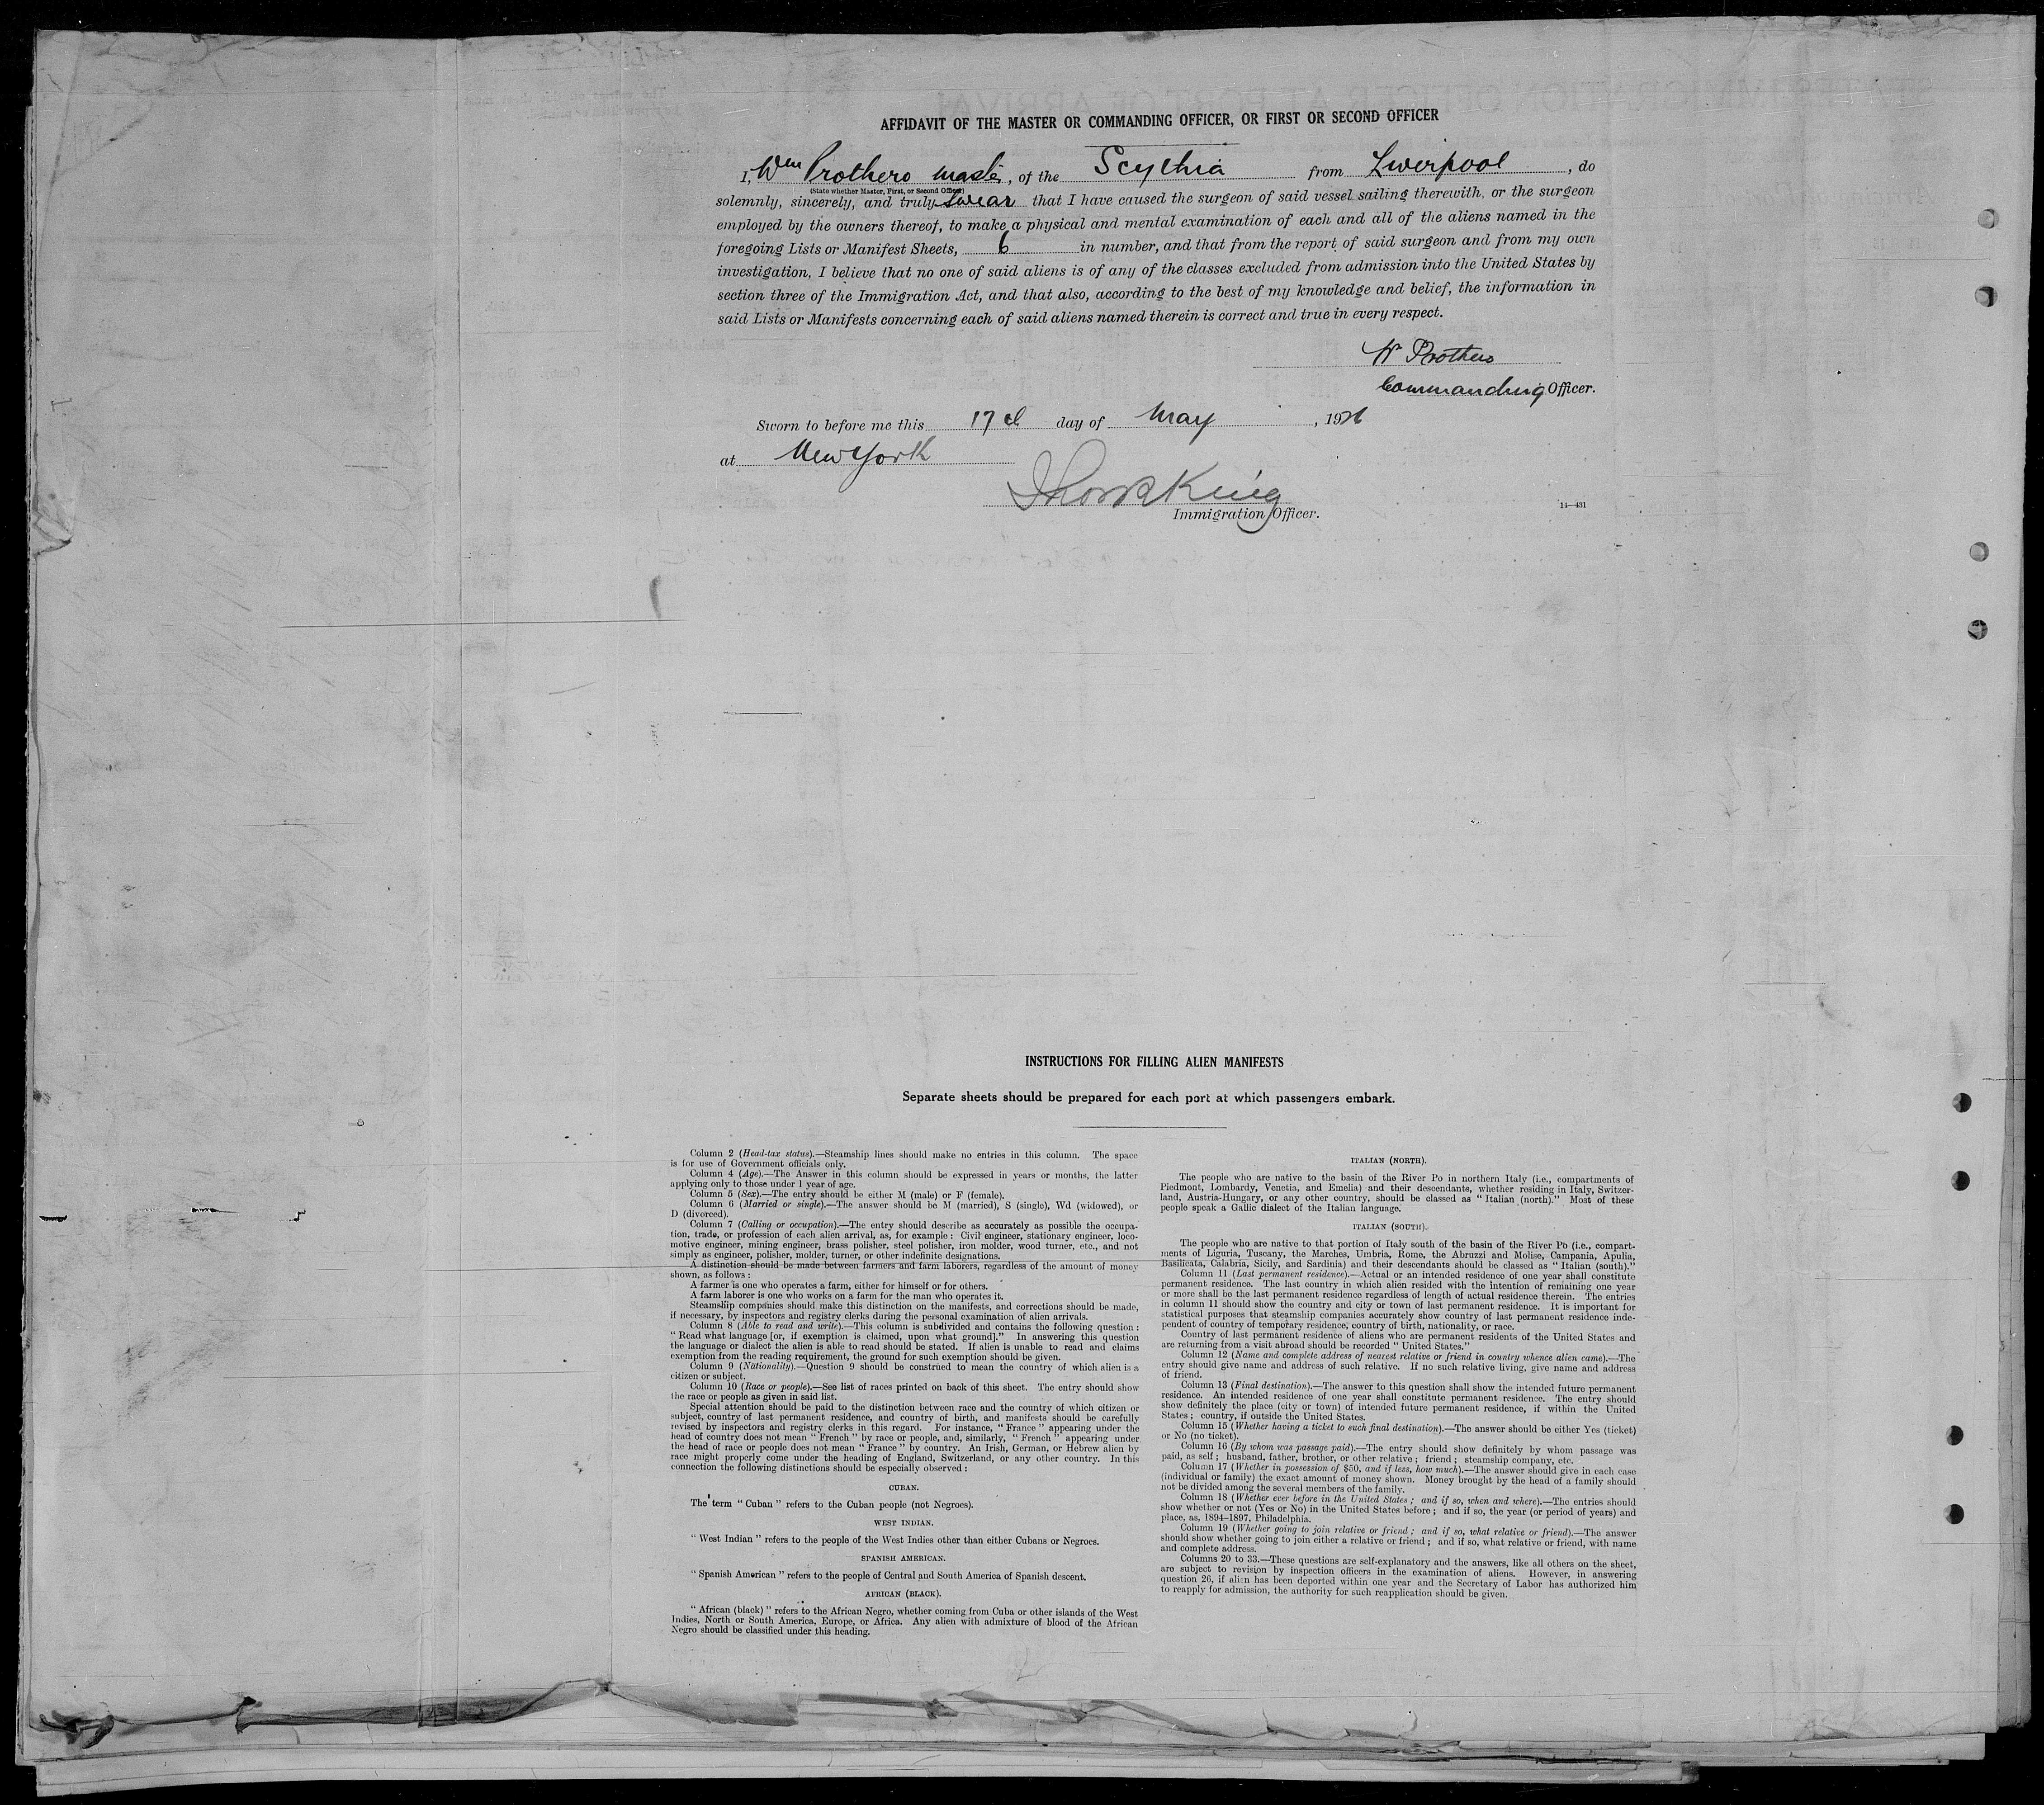 AFFIDAVIT OF THE MASTER OR COMMANDING OFFICER, OR FIRST OR SECOND OFFICER
I, Wm Prothero Master, of the Scythia from Liverpool, do
(State whether Master, First, or Second Officer)
solemnly, sincerely, and truly swear that I have caused the surgeon of said vessel sailing therewith, or the surgeon
employed by the owners thereof, to make a physical and mental examination of each and all of the aliens named in the
foregoing Lists or Manifest Sheets, 6 in number, and that from the report of said surgeon and from my own
investigation, I believe that no one of said aliens is of any of the classes excluded from admission into the United States by
section three of the Immigration Act, and that also, according to the best of my knowledge and belief, the information in
said Lists or Manifests concerning each of said aliens named therein is correct and true in every respect.
W Prothero
Commanding Officer.
Sworn to before me this 17 day of May, 192
at New York
King
Immigration Officer.
14—431
INSTRUCTIONS FOR FILLING ALIEN MANIFESTS
Separate sheets should be prepared for each port at which passengers embark.
Column 2 (Head-tax status).—Steamship lines should make no entries in this column. The space
is for use of Government officials only.
Column 4 (Age).—The Answer in this column should be expressed in years or months, the latter
applying only to those under 1 year of age.
Column 5 (Sex).—The entry should be either M (male) or F (female).
Column 6 (Married or single).—The answer should be M (married), S (single), Wd (widowed), or
D (divorced).
Column 7 (Calling or occupation).—The entry should describe as accurately as possible the occupa-
tion, trade, or profession of each alien arrival, as, for example: Civil engineer, stationary engineer, loco-
motive engineer, mining engineer, brass polisher, steel polisher, iron molder, wood turner, etc., and not
simply as engineer, polisher, molder, turner, or other indefinite designations.
A distinction should be made between farmers and farm laborers, regardless of the amount of money
shown, as follows:
A farmer is one who operates a farm, either for himself or for others.
A farm laborer is one who works on a farm for the man who operates it.
Steamship companies should make this distinction on the manifests, and corrections should be made,
if necessary, by inspectors and registry clerks during the personal examination of alien arrivals.
Column 8 (Able to read and write).—This column is subdivided and contains the following question:
“ Read what language [or, if exemption is claimed, upon what ground].” In answering this question
the language or dialect the alien is able to read should be stated. If alien is unable to read and claims
exemption from the reading requirement, the ground for such exemption should be given.
Column 9 (Nationality).—Question 9 should be construed to mean the country of which alien is a
citizen or subject.
Column 10 (Race or people).—See list of races printed on back of this sheet. The entry should show
the race or people as given in said list.
Special attention should be paid to the distinction between race and the country of which citizen or
subject, country of last permanent residence, and country of birth, and manifests should be carefully
revised by inspectors and registry clerks in this regard. For instance, “ France ” appearing under the
head of country does not mean “ French ” by race or people, and, similarly, “ French ” appearing under
the head of race or people does not mean “ France ” by country. An Irish, German, or Hebrew alien by
race might properly come under the heading of England, Switzerland, or any other country. In this
connection the following distinctions should be especially observed:
CUBAN.
The term “ Cuban ” refers to the Cuban people (not Negroes).
WEST INDIAN.
“ West Indian ” refers to the people of the West Indies other than either Cubans or Negroes.
SPANISH AMERICAN.
“ Spanish American ” refers to the people of Central and South America of Spanish descent.
AFRICAN (BLACK).
“ African (black) ” refers to the African Negro, whether coming from Cuba or other islands of the West
Indies, North or South America, Europe, or Africa. Any alien with admixture of blood of the African
Negro should be classified under this heading.
ITALIAN (NORTH).
The people who are native to the basin of the River Po in northern Italy (i.e., compartments of
Piedmont, Lombardy, Venetia, and Emelia) and their descendants, whether residing in Italy, Switzer-
land, Austria-Hungary, or any other country, should be classed as “ Italian (north).” Most of these
people speak a Gallic dialect of the Italian language.
ITALIAN (SOUTH).
The people who are native to that portion of Italy south of the basin of the River Po (i.e., compart-
ments of Liguria, Tuscany, the Marches, Umbria, Rome, the Abruzzi and Molise, Campania, Apulia,
Basilicata, Calabria, Sicily, and Sardinia) and their descendants should be classed as “ Italian (south).”
Column 11 (Last permanent residence).—Actual or an intended residence of one year shall constitute
permanent residence. The last country in which alien resided with the intention of remaining one year
or more shall be the last permanent residence regardless of length of actual residence therein. The entries
in column 11 should show the country and city or town of last permanent residence. It is important for
statistical purposes that steamship companies accurately show country of last permanent residence inde-
pendent of country of temporary residence, country of birth, nationality, or race.
Country of last permanent residence of aliens who are permanent residents of the United States and
are returning from a visit abroad should be recorded “ United States.”
Column 12 (Name and complete address of nearest relative or friend in country whence alien came).—The
entry should give name and address of such relative. If no such relative living, give name and address
of friend.
Column 13 (Final destination).—The answer to this question shall show the intended future permanent
residence. An intended residence of one year shall constitute permanent residence. The entry should
show definitely the place (city or town) of intended future permanent residence, if within the United
States; country, if outside the United States.
Column 15 (Whether having a ticket to such final destination).—The answer should be either Yes (ticket)
or No (no ticket).
Column 16 (By whom was passage paid).—The entry should show definitely by whom passage was
paid, as self; husband, father, brother, or other relative; friend; steamship company, etc.
Column 17 (Whether in possession of $50, and if less, how much).—The answer should give in each case
(individual or family) the exact amount of money shown. Money brought by the head of a family should
not be divided among the several members of the family.
Column 18 (Whether ever before in the United States; and if so, when and where).—The entries should
show whether or not (Yes or No) in the United States before; and if so, the year (or period of years) and
place, as, 1894–1897, Philadelphia.
Column 19 (Whether going to join relative or friend; and if so, what relative or friend).—The answer
should show whether going to join either a relative or friend; and if so, what relative or friend, with name
and complete address.
Columns 20 to 33.—These questions are self-explanatory and the answers, like all others on the sheet,
are subject to revision by inspection officers in the examination of aliens. However, in answering
question 26, if alien has been deported within one year and the Secretary of Labor has authorized him
to reapply for admission, the authority for such reapplication should be given.